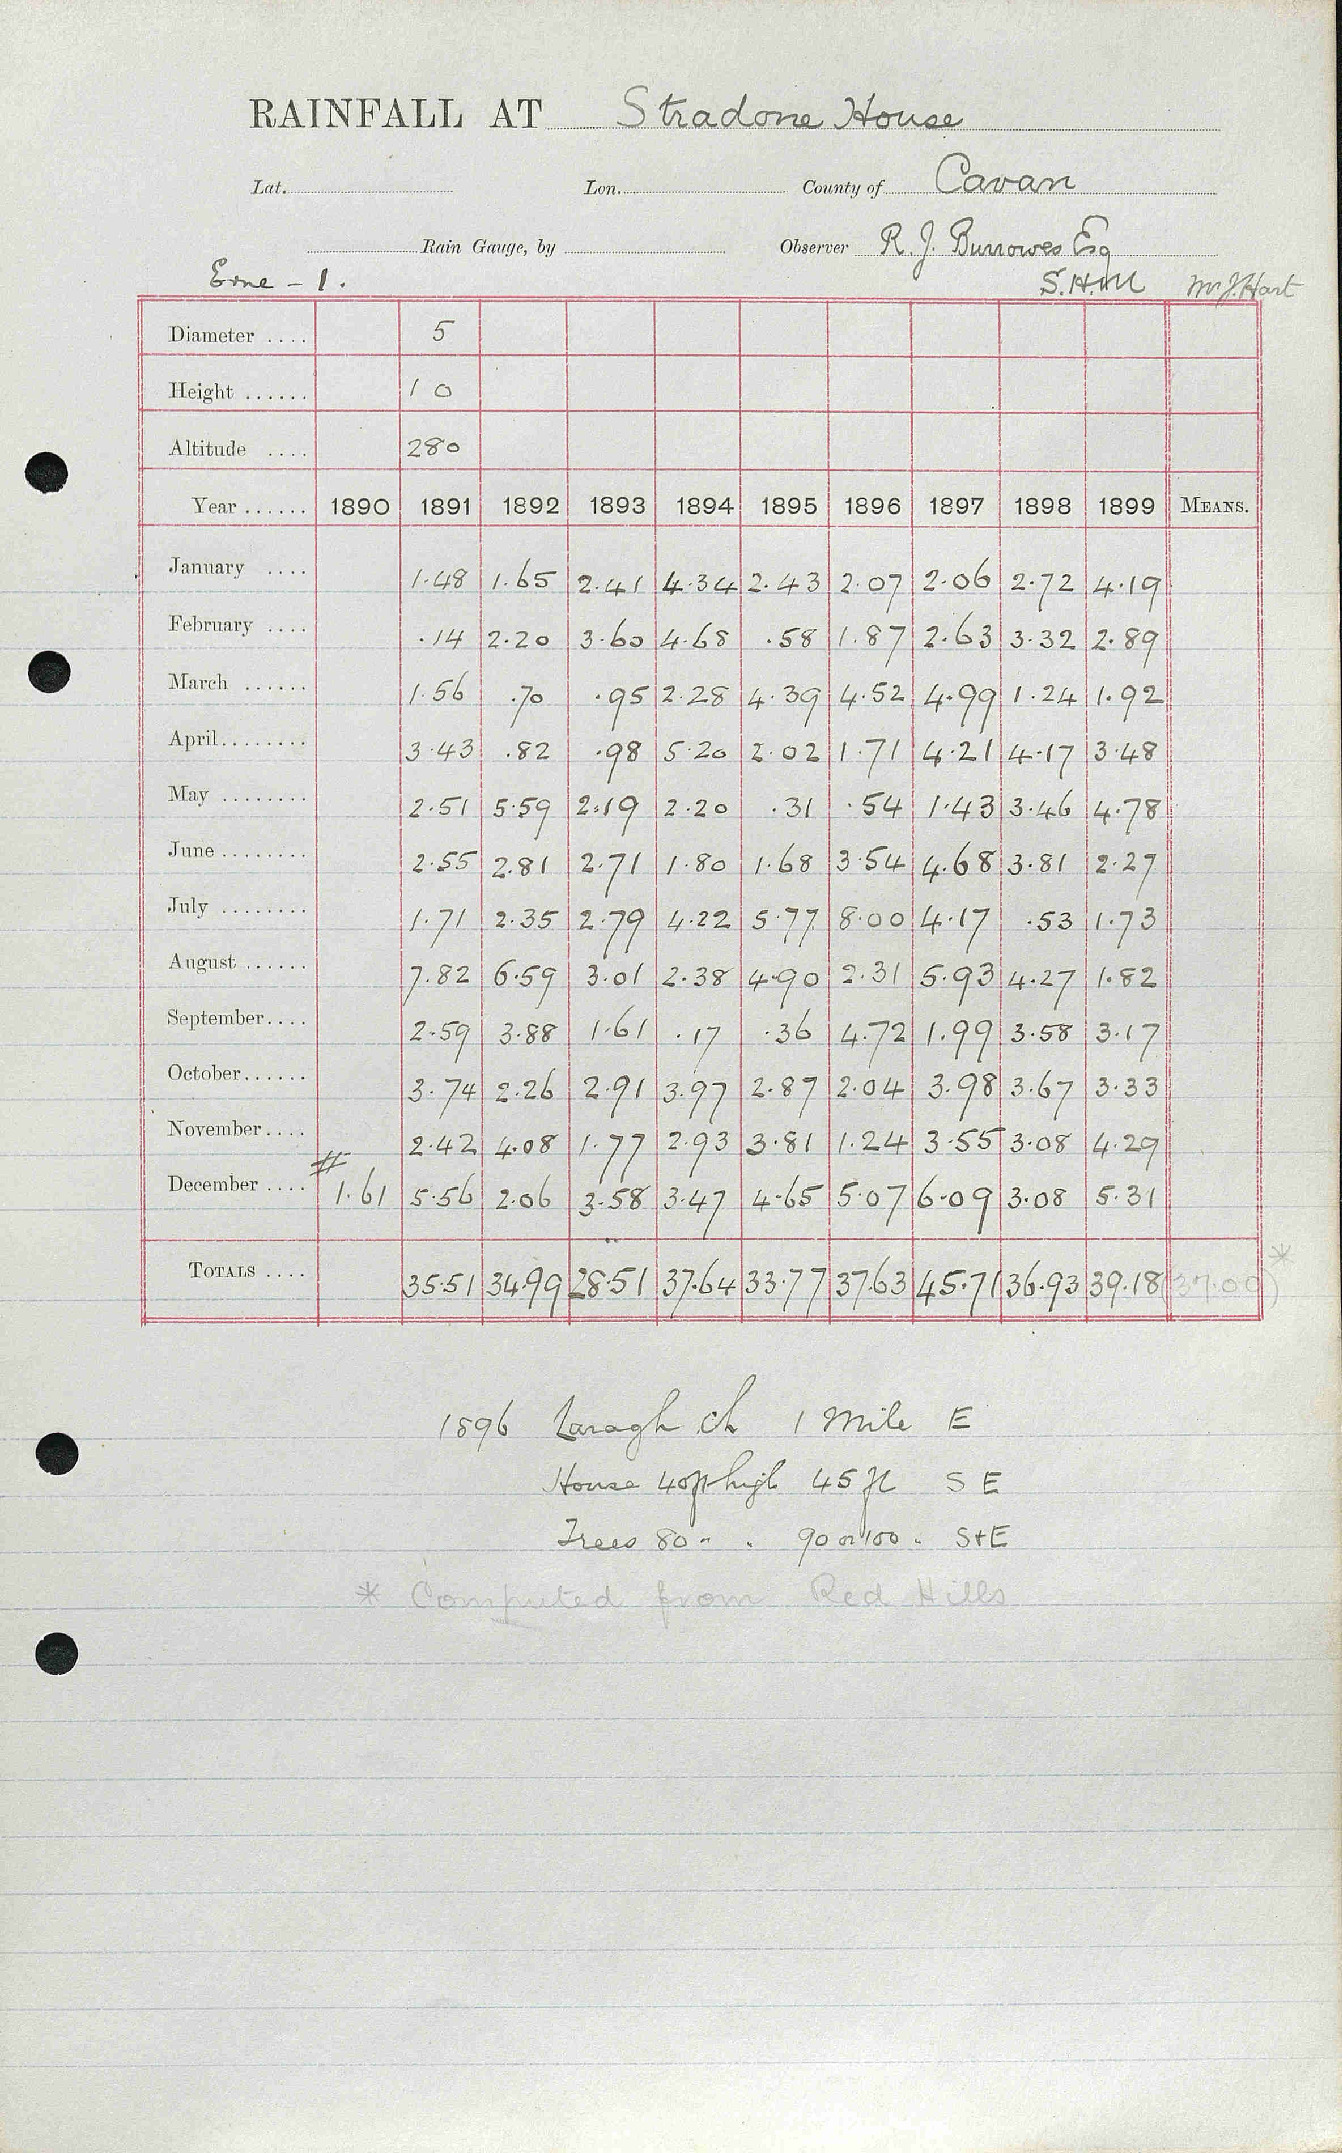 RAINFALL AT Stradone House
Lat. Lon. County of Cavan
Rain Gauge, by Observer R. J. Burrowes Esq
Erne - 1. S.H.M Mr J. Hart
Diameter .... 5
Height ...... 10
Altitude .... 280
Year ...... 1890 1891 1892 1893 1894 1895 1896 1897 1898 1899 MEANS.
January .... 1.48 1.65 2.41 4.34 2.43 2.07 2.06 2.72 4.19
February .... .14 2.20 3.60 4.68 .58 1.87 2.63 3.32 2.89
March ...... 1.56 .70 .95 2.28 4.39 4.52 4.99 1.24 1.92
April........ 3.43 .82 .98 5.20 2.02 1.71 4.21 4.17 3.48
May ........ 2.51 5.59 2.19 2.20 .31 .54 1.43 3.46 4.78
June ........ 2.55 2.81 2.71 1.80 1.68 3.54 4.68 3.81 2.27
July ........ 1.71 2.35 2.79 4.22 5.77 8.00 4.17 .53 1.73
August ...... 7.82 6.59 3.01 2.38 4.90 2.31 5.93 4.27 1.82
September.... 2.59 3.88 1.61 .17 .36 4.72 1.99 3.58 3.17
October...... 3.74 2.26 2.91 3.97 2.87 2.04 3.98 3.67 3.33
November.... 2.42 4.08 1.77 2.93 3.81 1.24 3.55 3.08 4.29
December .... # 1.61 5.56 2.06 3.58 3.47 4.65 5.07 6.09 3.08 5.31
TOTALS .... 35.51 34.99 28.51 37.64 33.77 37.63 45.71 36.93 39.18 (37.00)*
1896 Laragh Ch 1 Mile E
House 40ft high 45 ft S E
Trees 80 " . 90 or 100 . S+E
* Computed from Red Hills